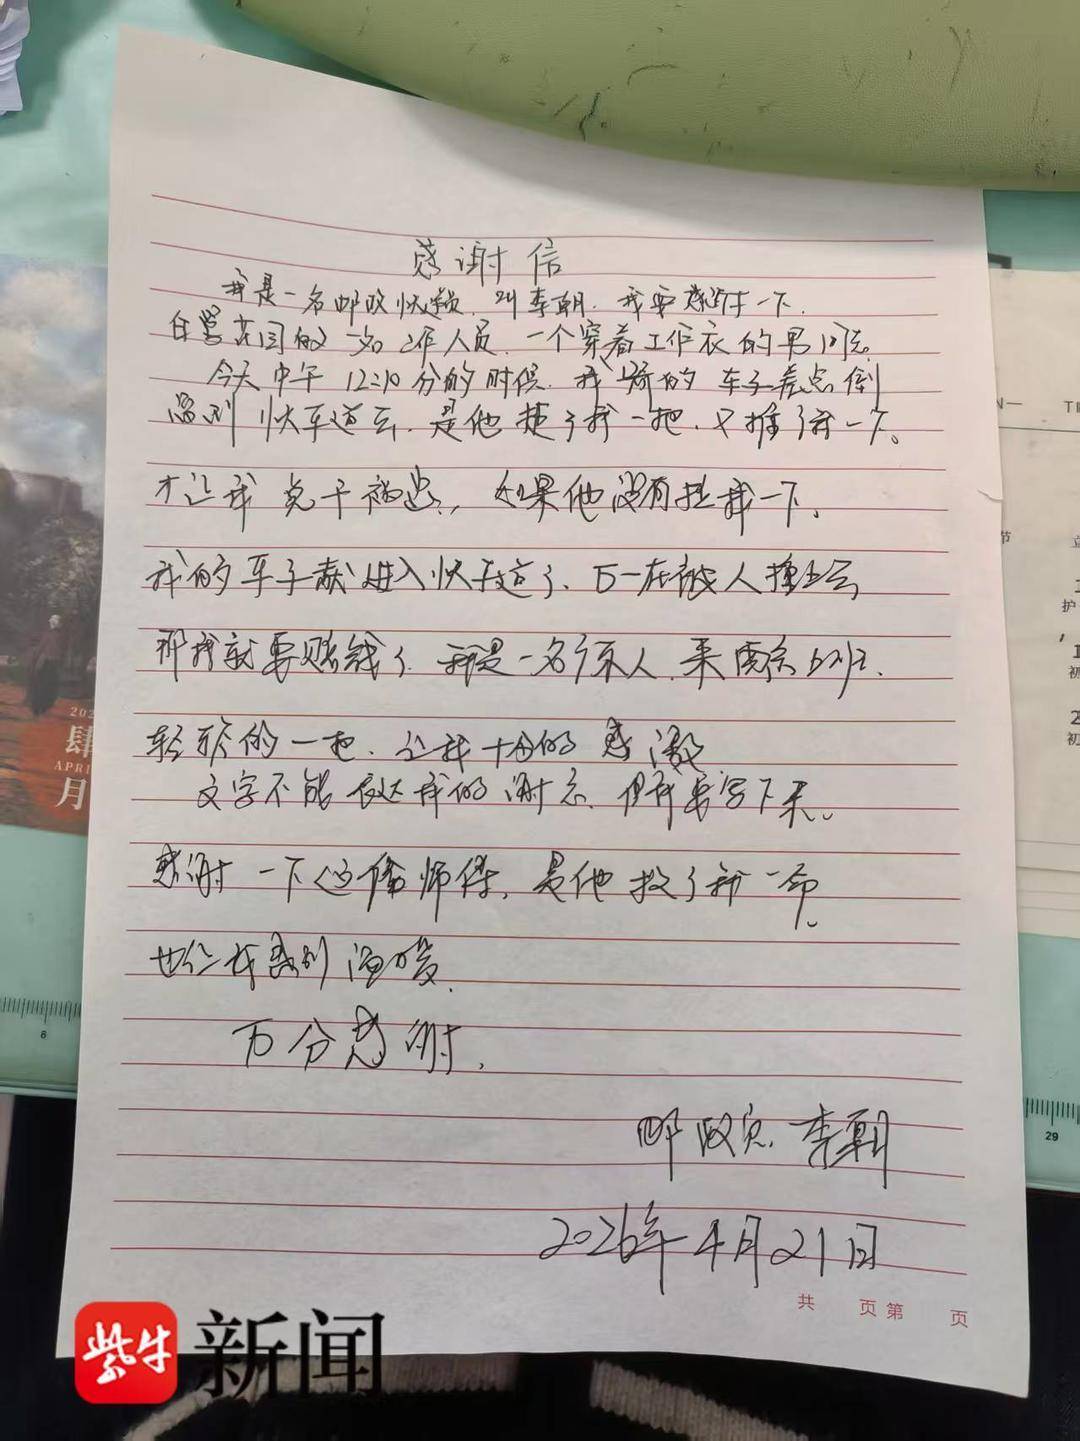 感谢信
我是一名邮政快递员,叫李朝.我要感谢一下.
花园的一名工作人员.一个穿着工作衣的男同志.
今天中午12:10分的时候.我骑的车子差点倒
到快车道去.是他提了我一把.又推了我一下。
才让我免于祸患.,如果他没有拉我一下.
我的车子就进入快车道了、万一在被人撞上去
那我就要赔钱了.我是一名农村人.来南京上班.
轻轻的一把.让我十分的感激
文字不能表达我的谢意.但我要写下来。
感谢一下这位师傅.是他救了我一命.
也让我感到温暖.
万分感谢.
邮政员.李朝
2026年4月21日
共 页 第 页
紫牛新闻
肆
APRI
月
8
29